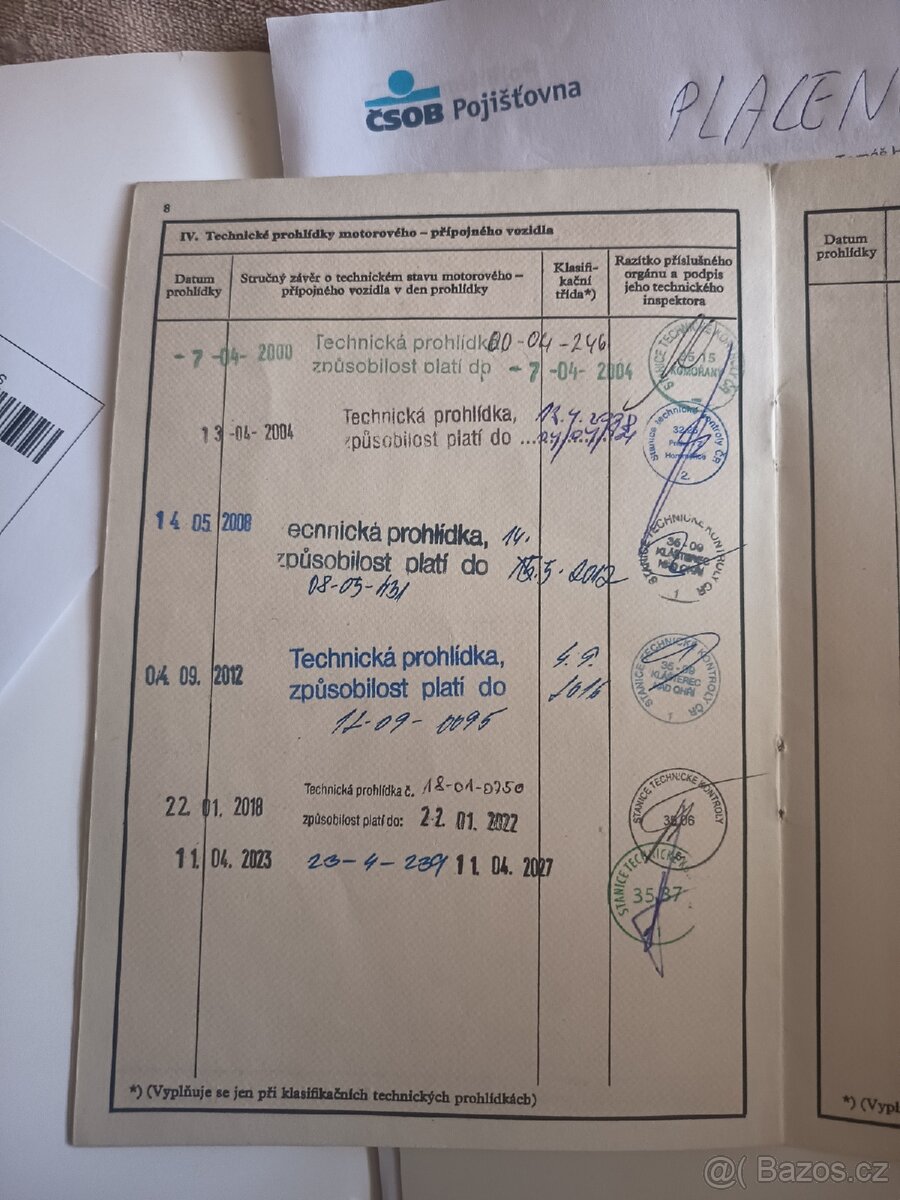 ČSOB Pojišťovna
PLACEN
8
IV. Technické prohlídky motorového – přípojného vozidla
Datum prohlídky
Stručný závěr o technickém stavu motorového –
přípojného vozidla v den prohlídky
Klasifi-
kační
třída*)
Razítko příslušného
orgánu a podpis
jeho technického
inspektora
Datum
prohlídky
- 7 -04- 2000
Technická prohlídka 00-04-246
způsobilost platí do - 7 -04- 2004
STANICE TECHNICKÉ KONTROLY ČR
35 15
KOMOŘANY
13 -04- 2004
Technická prohlídka,
způsobilost platí do ...
Stanice technické kontroly ČR
2
14 05 2008
echnická prohlídka, 14.
způsobilost platí do 5. 2012
08-05-431
STANICE TECHNICKÉ KONTROLY ČR
KLÁŠTEREC
NAD OHŘÍ
1
04 09. 2012
Technická prohlídka, 4. 9.
způsobilost platí do 2016
12-09- 0095
STANICE TECHNICKÉ KONTROLY ČR
35-09
KLÁŠTEREC
NAD OHŘÍ
1
22 01. 2018
Technická prohlídka č. 18-01-0750
způsobilost platí do: 22. 01. 2022
STANICE TECHNICKÉ KONTROLY
11. 04. 2023
23-4-239 11. 04. 2027
STANICE TECHNICKÉ
35.37
*) (Vyplňuje se jen při klasifikačních technických prohlídkách)
*) (Vypl
@( Bazos.cz